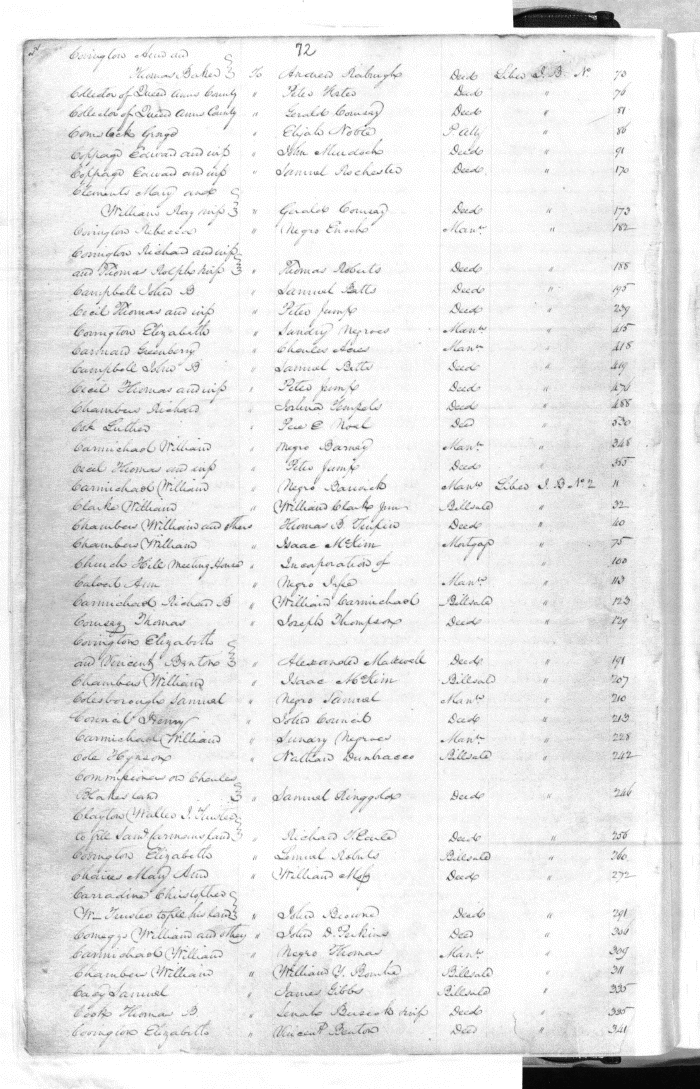 72
Covington Ann and
Thomas Baker To Andrew Deed Liber J. B No 70
Collector of Queen Anns County " Peter Deed " 76
Collector of Queen Anns County " Gerald Coursey Deed " 81
Comstock George " Elijah Noble " 86
Coppage Edward and wife " John Murdoch Deed " 91
Coppage Edward and wife " Samuel Rochester Deed " 170
Clements Mary and
William Ray wife " Gerald Coursey Deed " 173
Covington Rebecca " Negro Enoch Mann " 182
Covington Richard and wife
and Thomas Rolph & wife " Thomas Roberts Deed " 188
Campbell John B " Samuel Betts Deed " 195
Cecil Thomas and wife " Peter Jump Deed " 239
Covington Elizabeth " Sundry Negroes Manns " 415
Greenberry " Charles Mann " 418
Campbell John B " Samuel Betts Deed " 419
Cecil Thomas and wife " Peter Jump Deed " 474
Chambers Richard " Joshua Deed " 488
Cox Luther " Pere E Noel Deed " 530
Carmichael William " Negro Barney Mann " 348
Cecil Thomas and wife " Peter Jump Deed " 555
Carmichael William " Negro Manns Liber J. B No 2 11
Clarke William " William Clark Jun Billsale " 32
Chambers William and others Thomas B Deed " 40
Chambers William " Isaac McKim Mortgage " 75
Church Hill Meeting House " Incorporation of " 100
Ann " Negro Manns " 113
Carmichael Richard B " William Carmichael Billsale " 123
Coursey Thomas " Joseph Thompson Deed " 129
Covington Elizabeth
and Vincent Benton " Alexander Maxwell Deed " 191
Chambers William " Isaac McKim Billsale " 207
Colesborough Samuel " Negro Samuel Manns " 210
Council Henry " John Council Deed " 213
Carmichael William " Sundry Negroes Manns " 228
Cole Hynson " Nathaniel Dunbracco Billsale " 242
Commissioners on Charles
Blakes land " Samuel Ringgold Deed " 246
Clayton Walter J. Trustee
to sell Saml land " Richard Deed " 256
Covington Elizabeth " Lemuel Roberts Billsale " 260
Chaires Mary Ann " William Deed " 272
Carradine Christopher
Wm Trustee to sell his land " John Browne Deed " 291
Comegys William and others " John D. Perkins Deed " 304
Carmichael William " Negro Thomas Manns " 309
Chambers William " William Y. Billsale " 311
Casey Samuel " James Gibbs Billsale " 335
Cook Thomas B " & wife Deed " 335
Covington Elizabeth " Vincent Benton Deed " 341